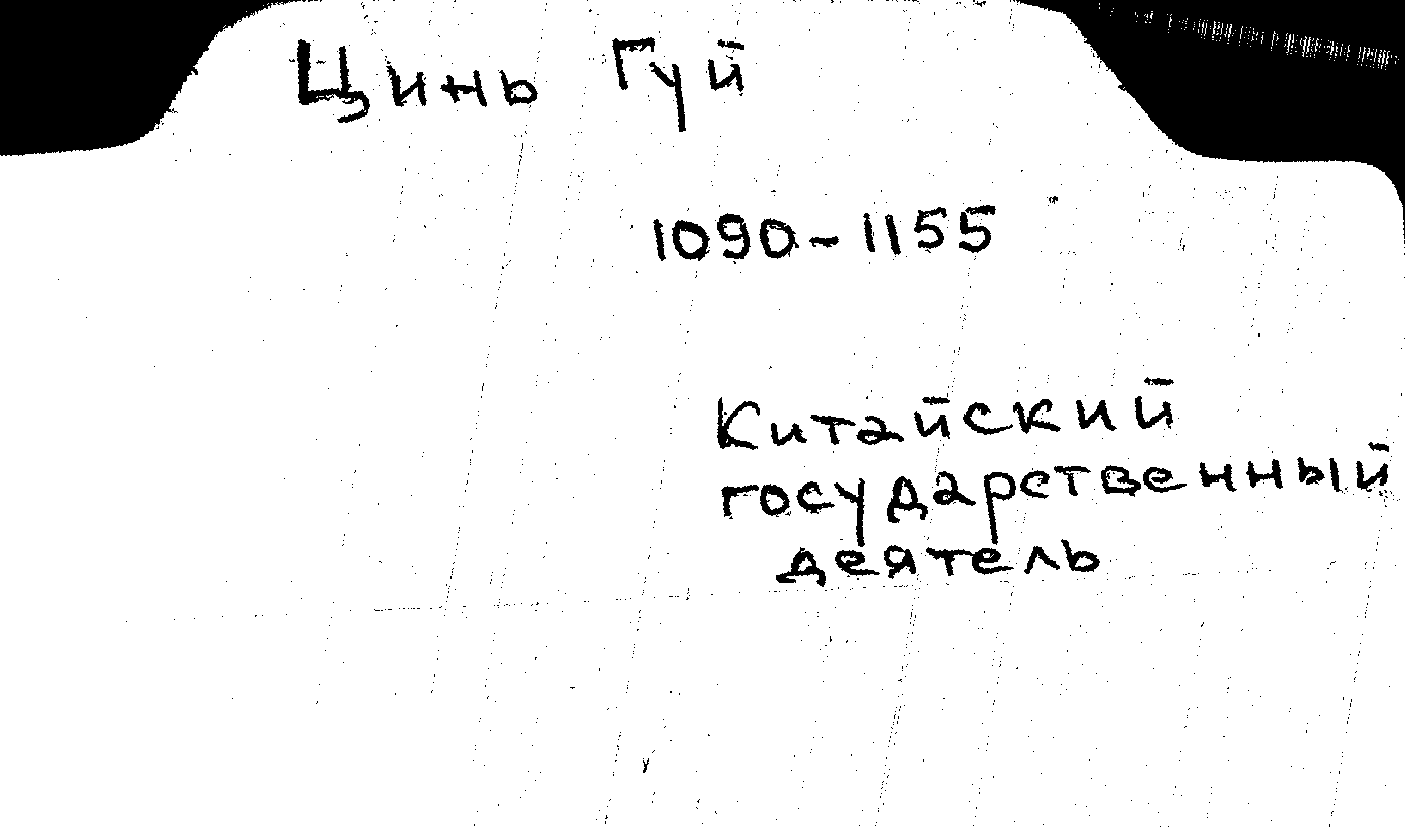 Цинь Гуй
1090-1155
Китайский
государственный
деятель